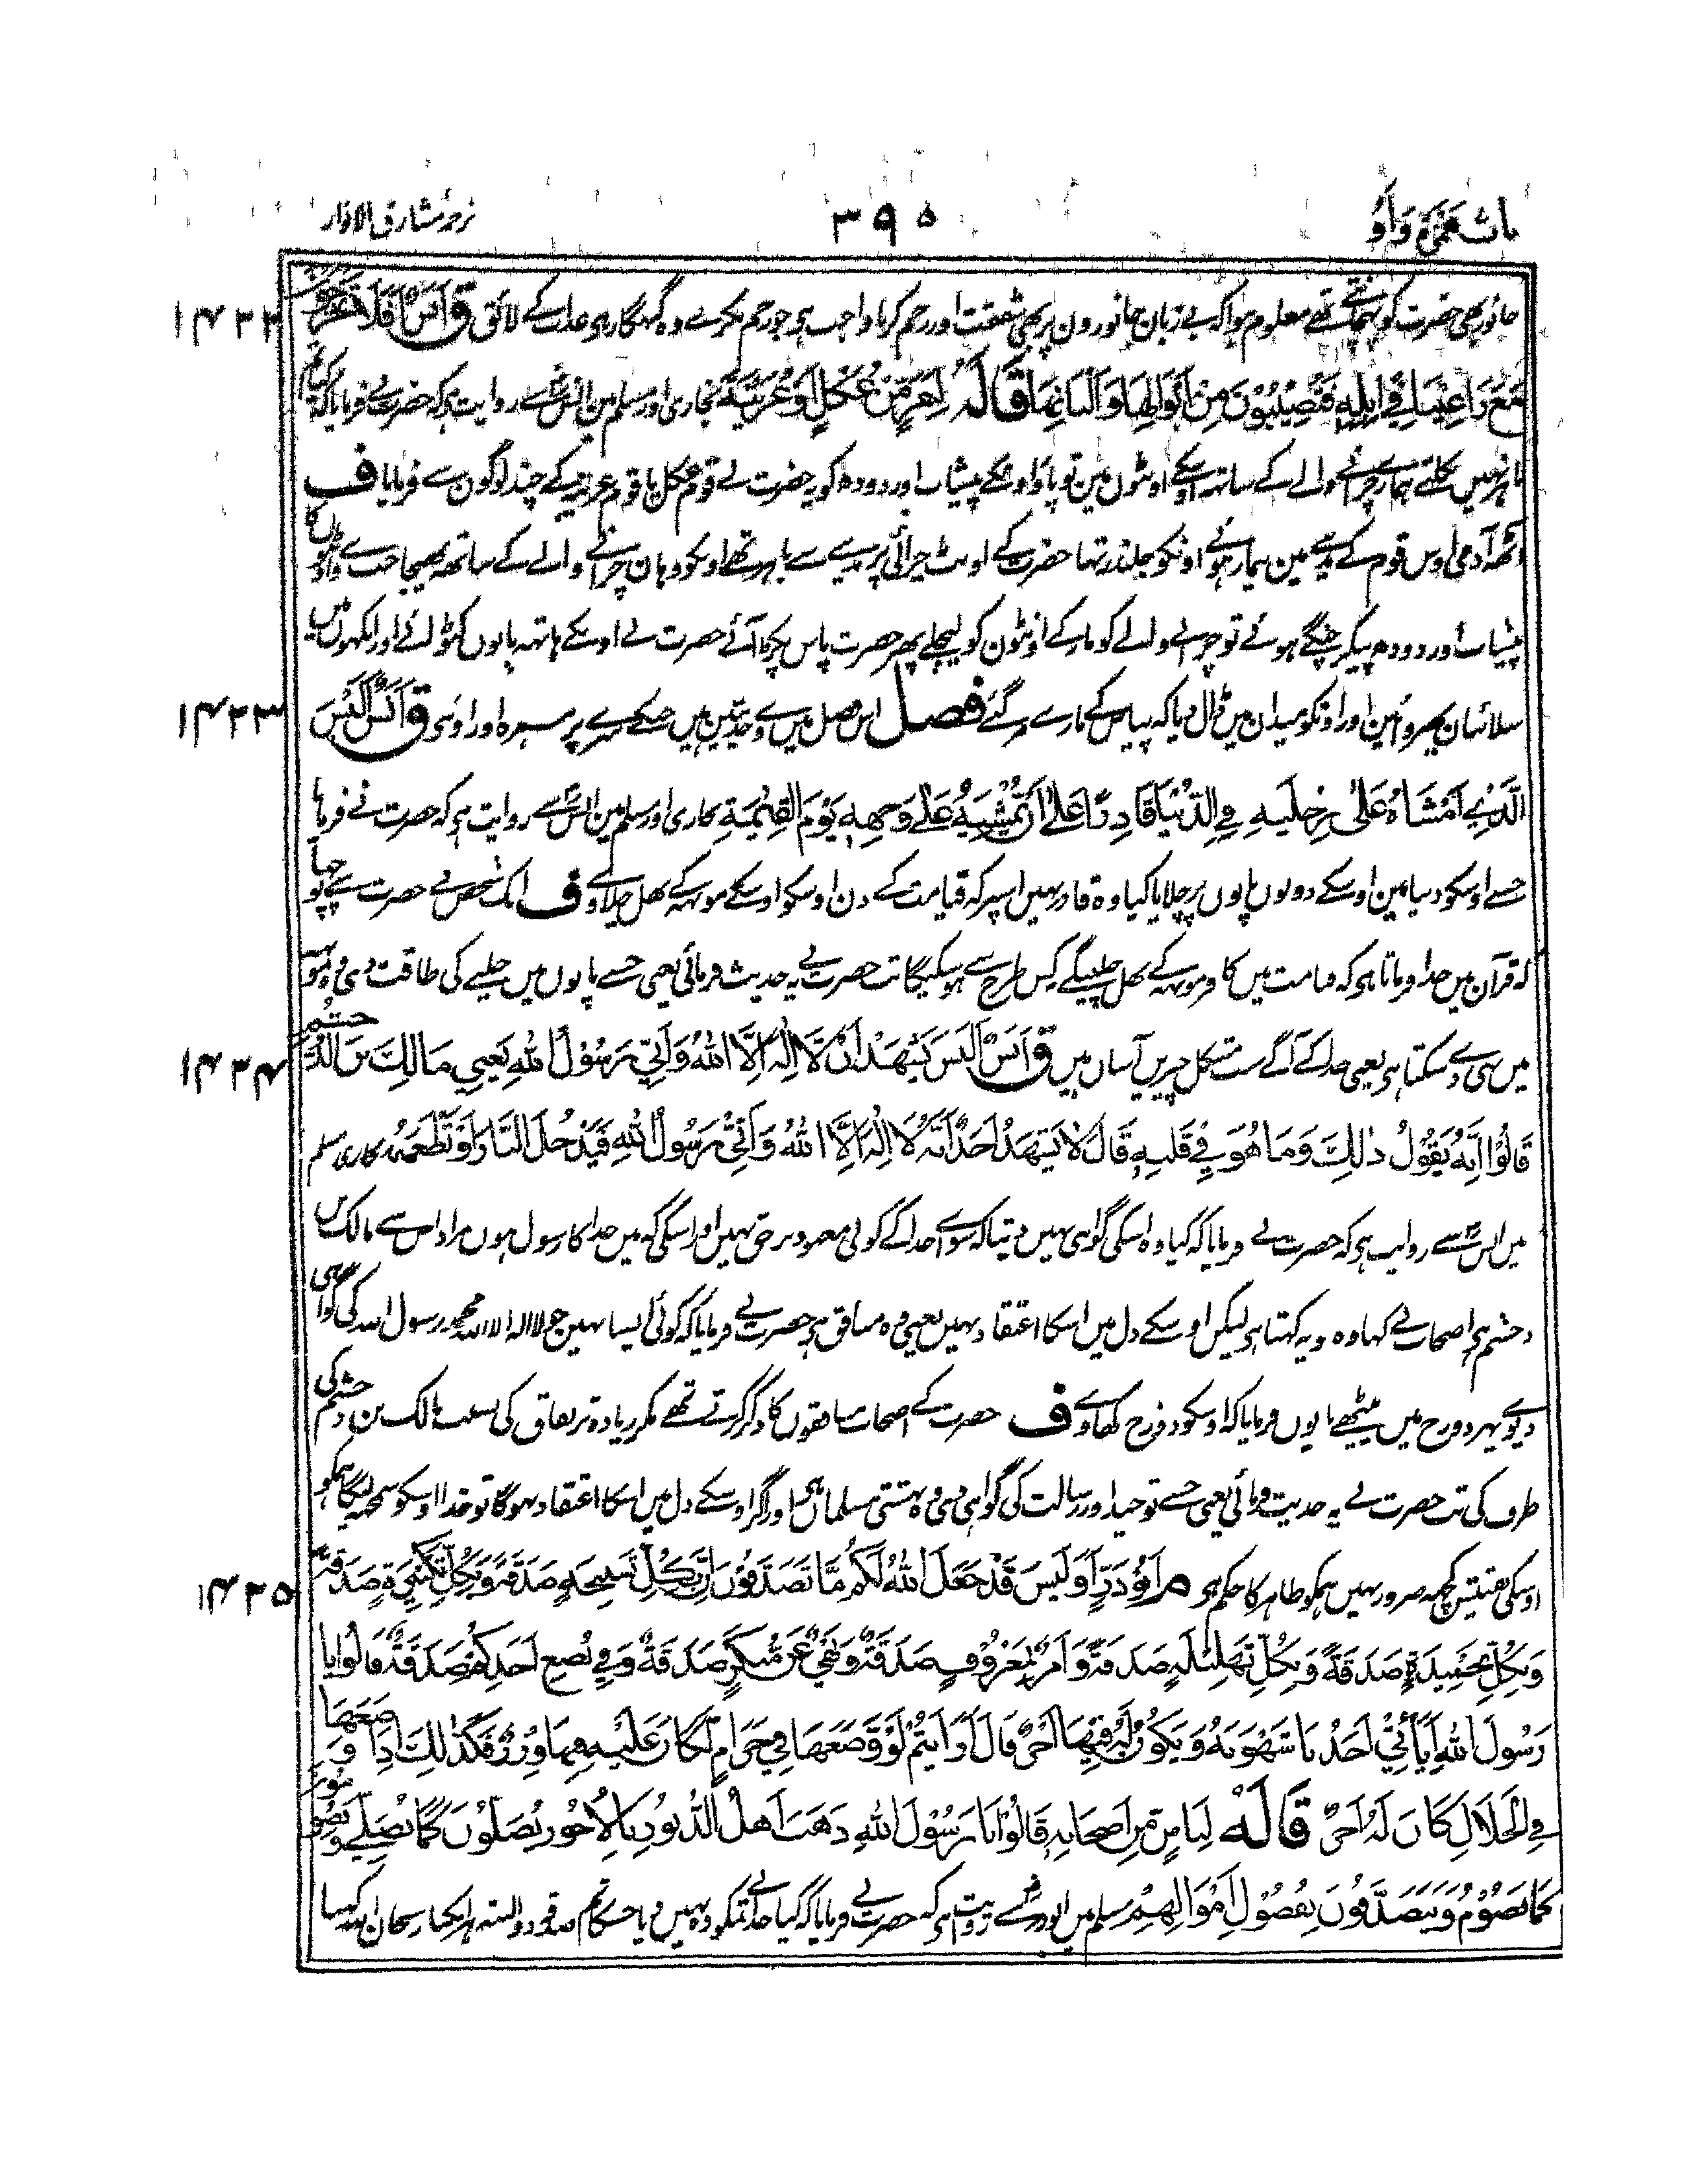 باب ہمزہ و واؤ
۳۹۵
ترجمہ مشارق الانوار
جانور بھی حضرت کو پہچانتے تھے معلوم ہوا کہ بے زبان جانورون پر بھی شفقت اور رحم کرنا واجب ہی جو رحم نکرے وہ گنہگار ہی عذاب کے لائق ق اَنَسٌ اَفَلَا تَخْرُجُونَ
۱۴۳۲
مَعَ رَاعِیْنَا فِیْ اِبِلِہٖ فَتُصِیْبُوْنَ مِنْ اَبْوَالِہَا وَاَلْبَانِہَا قَالَہٗ لِنَفَرٍ مِّنْ عُکْلٍ اَوْ عُرَیْنَۃَ بخاری اور مسلم مین انسؓ سے روایت ہی کہ حضرت نے فرمایا کہ کیا تم
باہر نہیں نکلتے ہمارے چرانے والے کے ساتھ اوسکے اونٹوں مین تو پاؤ اونکے پیشاب اور دودہ کو یہ حضرت نے قوم عکل یا قوم عرینہ کے چند لوگون سے فرمایا ف
آٹھہ آدمی اوس قوم کے مدینے مین بیمار ہوئے اونکو جلندر تہا حضرت کے اونٹ چرائی پر مدینے سے باہر تھے اونکو وہان چرانے والے کے ساتھ بھیجا جب وے اونٹوں کا
پیشاب اور دودہ پیکر چنگے ہوئے تو چرانے والے کو مار کے اونٹون کو لیچلے پھر حضرت پاس پکڑے آئے حضرت نے اونکے ہاتھہ پاوں کٹوالے اور انکہوں میں
سلائیان پھروائین اور اونکو میدان میں ڈال دیا کہ پیاس کے مارے مر گئے فصل اس فصل میں وے حدیثیں ہیں جنکے سرے پر ہمزہ اور واو ہی ق اَنَسٌ اَلَیْسَ
۱۴۳۳
الَّذِیْ اَمْشَاہُ عَلٰی رِجْلَیْہِ فِی الدُّنْیَا قَادِرًا عَلٰی اَنْ یُّمْشِیَہٗ عَلٰی وَجْہِہٖ یَوْمَ الْقِیٰمَۃِ بخاری اور مسلم مین انسؓ سے روایت ہی کہ حضرت نے فرمایا
جسنے اوسکو دنیا مین اوسکے دونوں پاوں پر چلایا کیا وہ قادر نہیں اسپر کہ قیامت کے دن اوسکو اوسکے موںہہ کے بھل چلاوے ف ایک شخص نے حضرت سے پوچھا
کہ قرآن میں خدا فرماتا ہی کہ قیامت میں کافر موںہہ کے بھل چلینگے کس طرح سے ہو سکیگا تب حضرت نے یہ حدیث فرمائی یعنی جسنے پاوں میں چلنے کی طاقت دی وہ موںہہ
میں بھی دے سکتا ہی یعنی خدا کے آگے سب مشکل چیزیں آسان ہیں ق اَنَسٌ اَلَیْسَ یَشْہَدُ اَنْ لَّا اِلٰہَ اِلَّا اللہُ وَاَنِّیْ رَسُوْلُ اللہِ یَعْنِیْ مَالِکَ بْنَ الدُّخْشُمِ
۱۴۳۴
قَالُوْا اِنَّہٗ یَقُوْلُ ذٰلِکَ وَمَا ہُوَ فِیْ قَلْبِہٖ قَالَ لَا یَشْہَدُ اَحَدٌ اَنَّہٗ لَا اِلٰہَ اِلَّا اللہُ وَاَنِّیْ رَسُوْلُ اللہِ فَیَدْخُلَ النَّارَ اَوْ تَطْعَمَہٗ بخاری مسلم
میں انسؓ سے روایت ہی کہ حضرت نے فرمایا کہ کیا وہ اسکی گواہی نہیں دیتا کہ سوائے خدا کے کوئی معبود برحق نہیں اور اسکی کہ میں خدا کا رسول ہوں مراد اس سے مالک بن
دخشم ہی اصحاب نے کہا وہ تو یہ کہتا ہی لیکن اوسکے دل میں اسکا اعتقاد نہیں یعنی وہ منافق ہی حضرت نے فرمایا کہ کوئی ایسا نہیں جو لا الہ الا اللہ محمد رسول اللہ کی گواہی
دیوے پہر دوزخ میں پیٹھے یا یوں فرمایا کہ اوسکو دوزخ کھاوے ف حضرت کے اصحاب منافقوں کا ذکر کرتے تھے مگر زیادہ تر نفاق کی نسبت مالک بن دخشم کی
طرف کی تب حضرت نے یہ حدیث فرمائی یعنی جسنے توحید اور رسالت کی گواہی دی وہ بہشتی مسلمان ہی اور اگر اوسکے دل میں اسکا اعتقاد نہوگا تو خدا اوسکو سمجھہ لیگا ہمکو
اوسکی تفتیش کچھہ ضرور نہیں ہمکو ظاہر کا حکم ہی م اَبُوْ ذَرٍّ اَوَلَیْسَ قَدْ جَعَلَ اللہُ لَکُمْ مَّا تَصَدَّقُوْنَ اِنَّ بِکُلِّ تَسْبِیْحَۃٍ صَدَقَۃً وَبِکُلِّ تَکْبِیْرَۃٍ صَدَقَۃً
۱۴۳۵
وَبِکُلِّ تَحْمِیْدَۃٍ صَدَقَۃً وَبِکُلِّ تَہْلِیْلَۃٍ صَدَقَۃً وَاَمْرٌ بِالْمَعْرُوْفِ صَدَقَۃٌ وَنَہْیٌ عَنْ مُّنْکَرٍ صَدَقَۃٌ وَفِیْ بُضْعِ اَحَدِکُمْ صَدَقَۃٌ قَالُوْا یَا
رَسُوْلَ اللہِ اَیَاْتِیْ اَحَدُنَا شَہْوَتَہٗ وَیَکُوْنُ لَہٗ فِیْہَا اَجْرٌ قَالَ اَرَاَیْتُمْ لَوْ وَضَعَہَا فِیْ حَرَامٍ اَکَانَ عَلَیْہِ فِیْہَا وِزْرٌ فَکَذٰلِکَ اِذَا وَضَعَہَا
فِی الْحَلَالِ کَانَ لَہٗ اَجْرٌ قَالَہٗ لِنَاسٍ مِّنْ اَصْحَابِہٖ قَالُوْا یَا رَسُوْلَ اللہِ ذَہَبَ اَہْلُ الدُّثُوْرِ بِالْاُجُوْرِ یُصَلُّوْنَ کَمَا نُصَلِّیْ وَیَصُوْمُوْنَ
کَمَا نَصُوْمُ وَیَتَصَدَّقُوْنَ بِفُضُوْلِ اَمْوَالِہِمْ مسلم میں ابوذرؓ سے روایت ہی کہ حضرت نے فرمایا کہ کیا خدا نے تمکو وہ نہیں دیا جسکا تم صدقہ دو البتہ ہر ایکبار سبحان اللہ کہنا